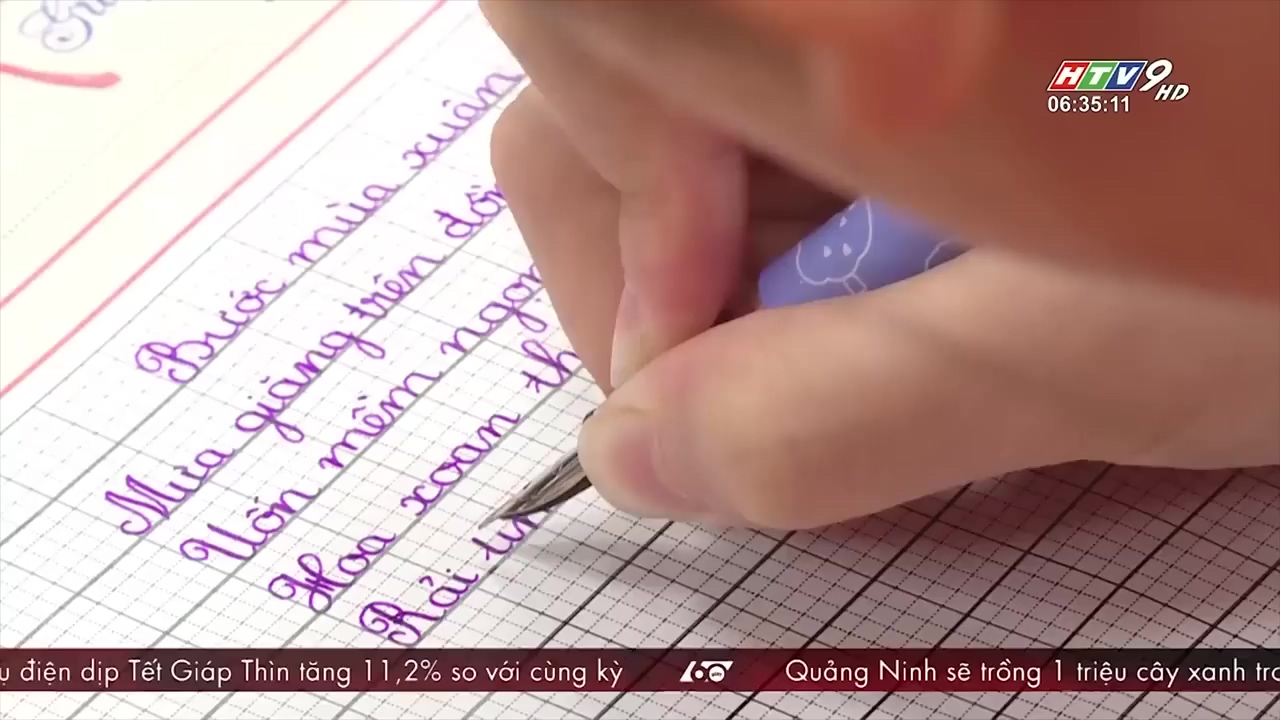 HTV9 HD
06:35:11
Bước mùa xuân
Mưa giăng trên
Uốn mềm
Hoa xoan
Rải
điện dịp Tết Giáp Thìn tăng 11,2% so với cùng kỳ
60 giây
Quảng Ninh sẽ trồng 1 triệu cây xanh